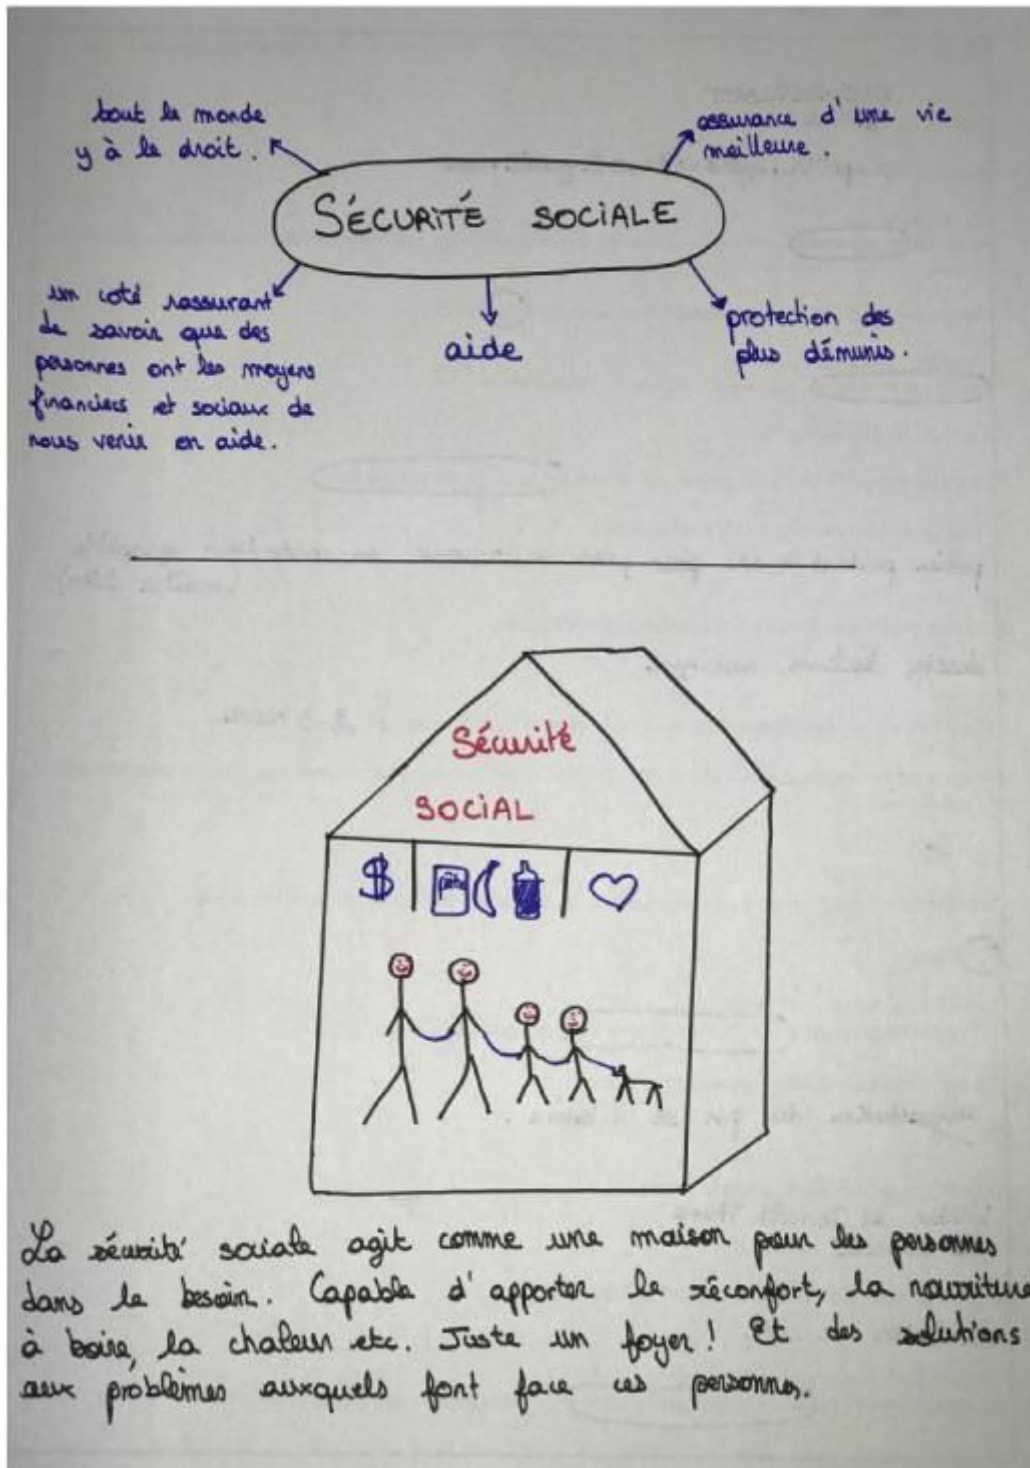 tout le monde
y à le droit.
assurance d'une vie
meilleure.
SÉCURITÉ SOCIALE
un coté rassurant
de savoir que des
personnes ont les moyens
financiers et sociaux de
nous venir en aide.
aide
protection des
plus démunis.
Sécurité
SOCIAL
$
La sécurité sociale agit comme une maison pour les personnes
dans le besoin. Capable d'apporter le réconfort, la nourriture
à boire, la chaleur etc. Juste un foyer ! Et des solutions
aux problèmes auxquels font face ces personnes.